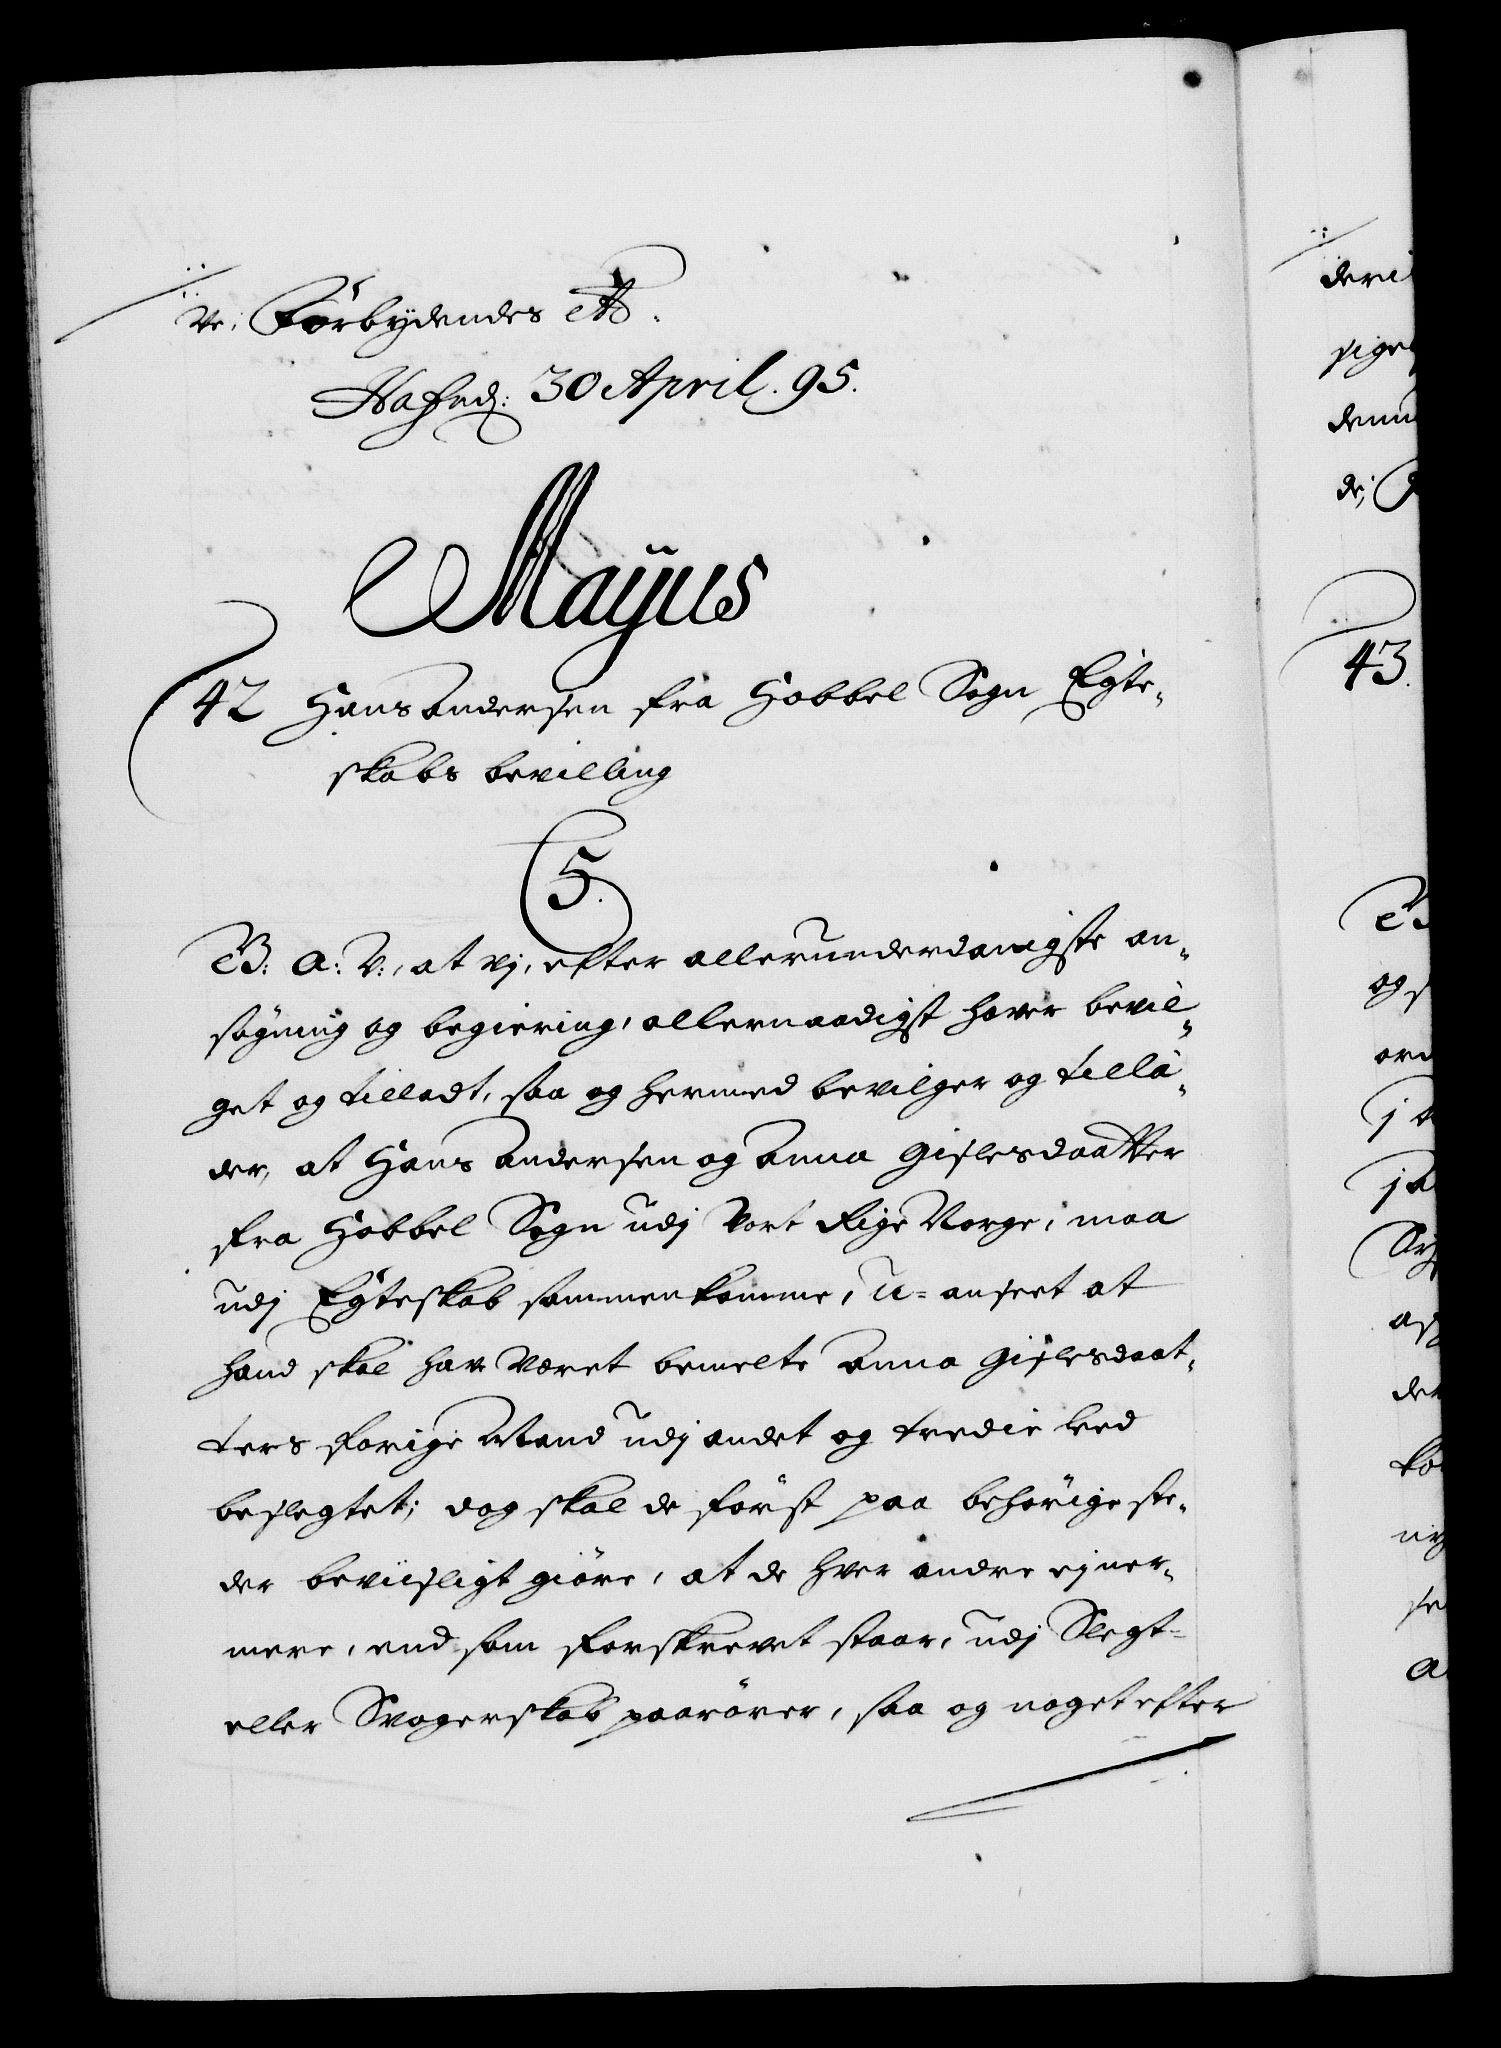 de; Forbydendes etc.
Hafnd: 30 April. 95.
Mayus
42 Hans Andersen fra Hobbel Sogn Egte-
skabs bevilling
5.
G. A: V:, at vj, efter allerunderdanigste an-
søgning og begiering, allernaadigst haver bevil-
get og tilladt, saa og hermed bevilger og tilla-
der, at Hans Andersen og Anna Gislesdaatter
fra Hobbel Sogn udj Vort Rige Norge, maa
udj Egteskab sammenkomme, U-anseet at
hand skal har været bemelte Anna Gislesdaat-
ters forige Mand udj andet og tredie Leed
beslegtet; dog skal de først paa behørige ste-
der beviisligt giøre, at de hver andre ej ner-
mere, end som forskrevet staar, udj Slegt-
eller Svogerskab paarører, saa og noget efter
43.